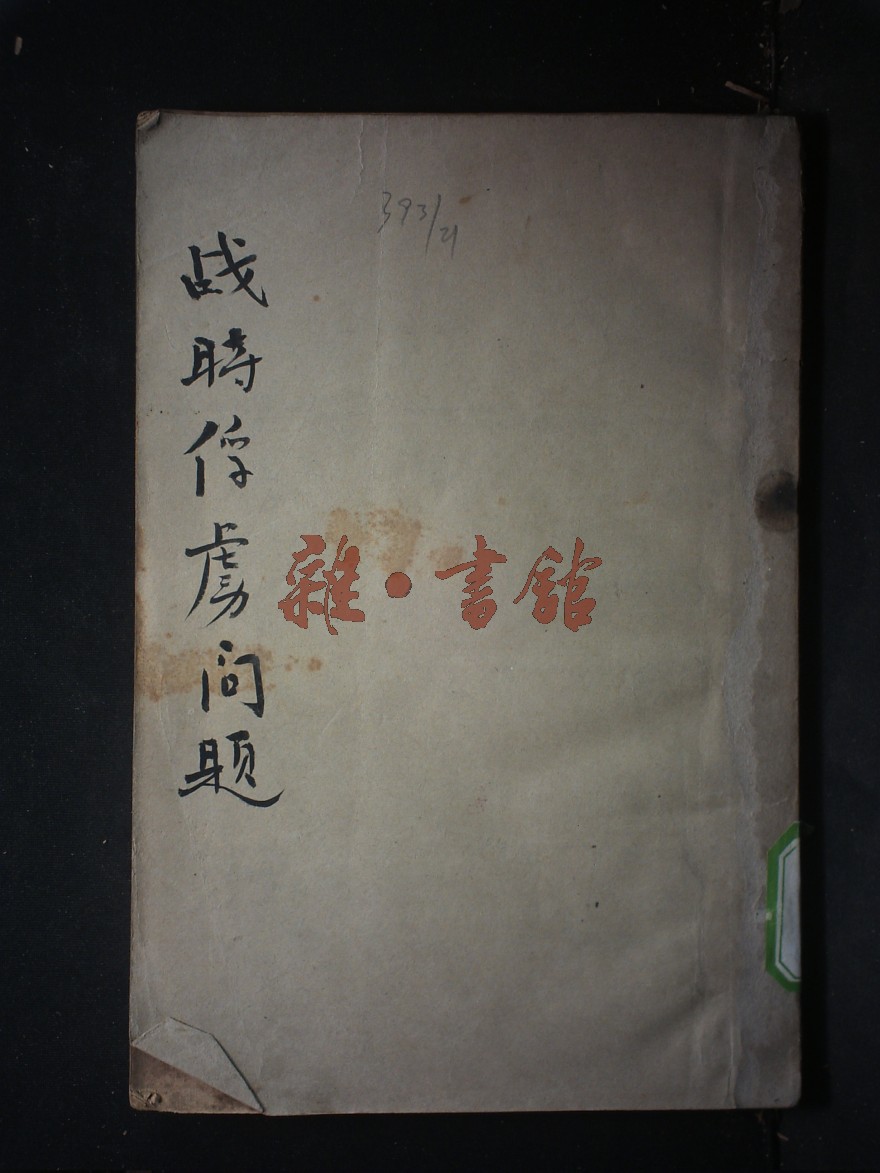 393/21
战時俘虏问题
雜·書館